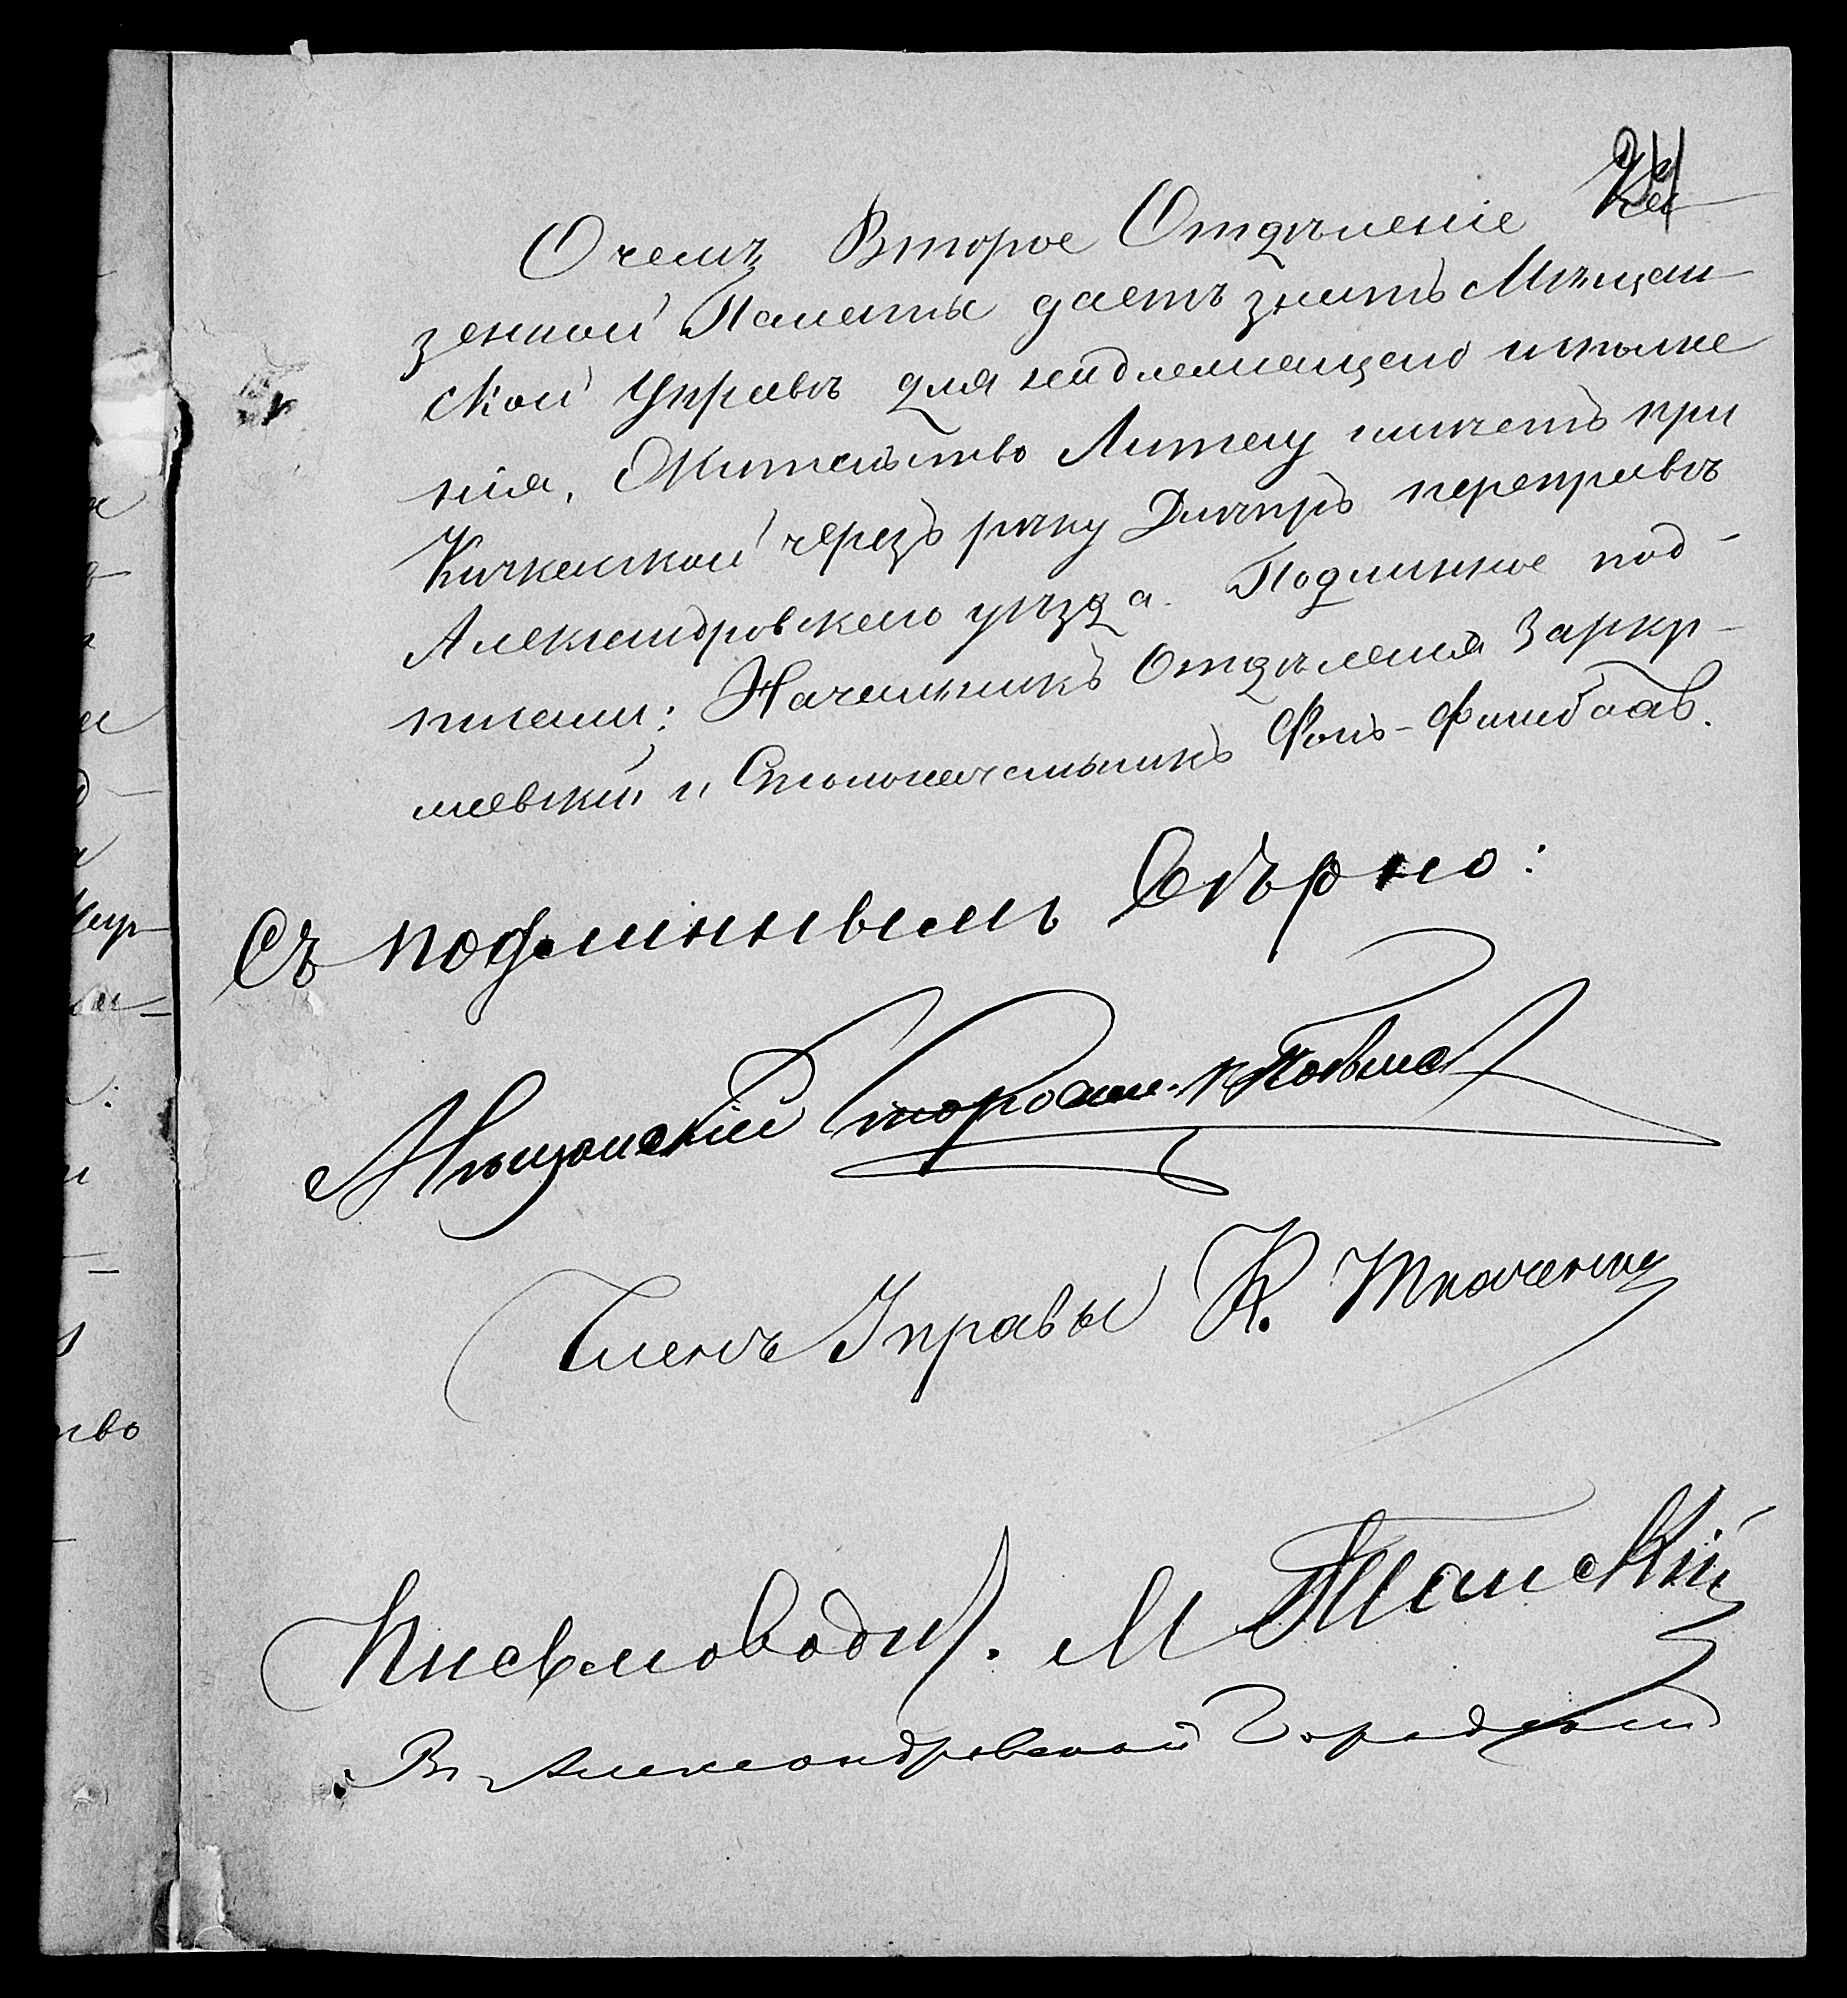 24
О чемъ Второе Отдѣленіе Ка-
зенной Палаты даетъ знать Мѣщан-
ской Управѣ для надлежащаго исполне
нія, Жительство Литту имѣетъ при
Кичкаской черезъ рѣку Днѣпръ переправѣ
Александровскаго уѣзда. Подлинное под-
писали: Начальникъ Отдѣленія Заркр-
жевскій и Столоначальникъ Фонъ-Фитбаав.
Съ подлиннымъ Свѣрно:
Мѣщанскій Староста
Членъ Управы К. Ткаченко
Письмоводит. М Танскій
Въ Александровской Городской